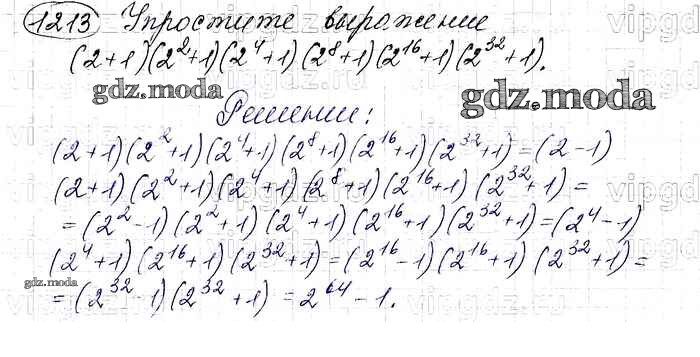 1213 Упростите выражение
(2+1)(2²+1)(2⁴+1)(2⁸+1)(2¹⁶+1)(2³²+1).
gdz.moda
gdz.moda
Решении:
(2+1)(2²+1)(2⁴+1)(2⁸+1)(2¹⁶+1)(2³²+1)=(2-1)
(2+1)(2²+1)(2⁴+1)(2⁸+1)(2¹⁶+1)(2³²+1)=
=(2²-1)(2²+1)(2⁴+1)(2¹⁶+1)(2³²+1)=(2⁴-1)
(2⁴+1)(2¹⁶+1)(2³²+1)=(2¹⁶-1)(2¹⁶+1)(2³²+1)=
gdz.moda
=(2³²-1)(2³²+1)=2⁶⁴-1.